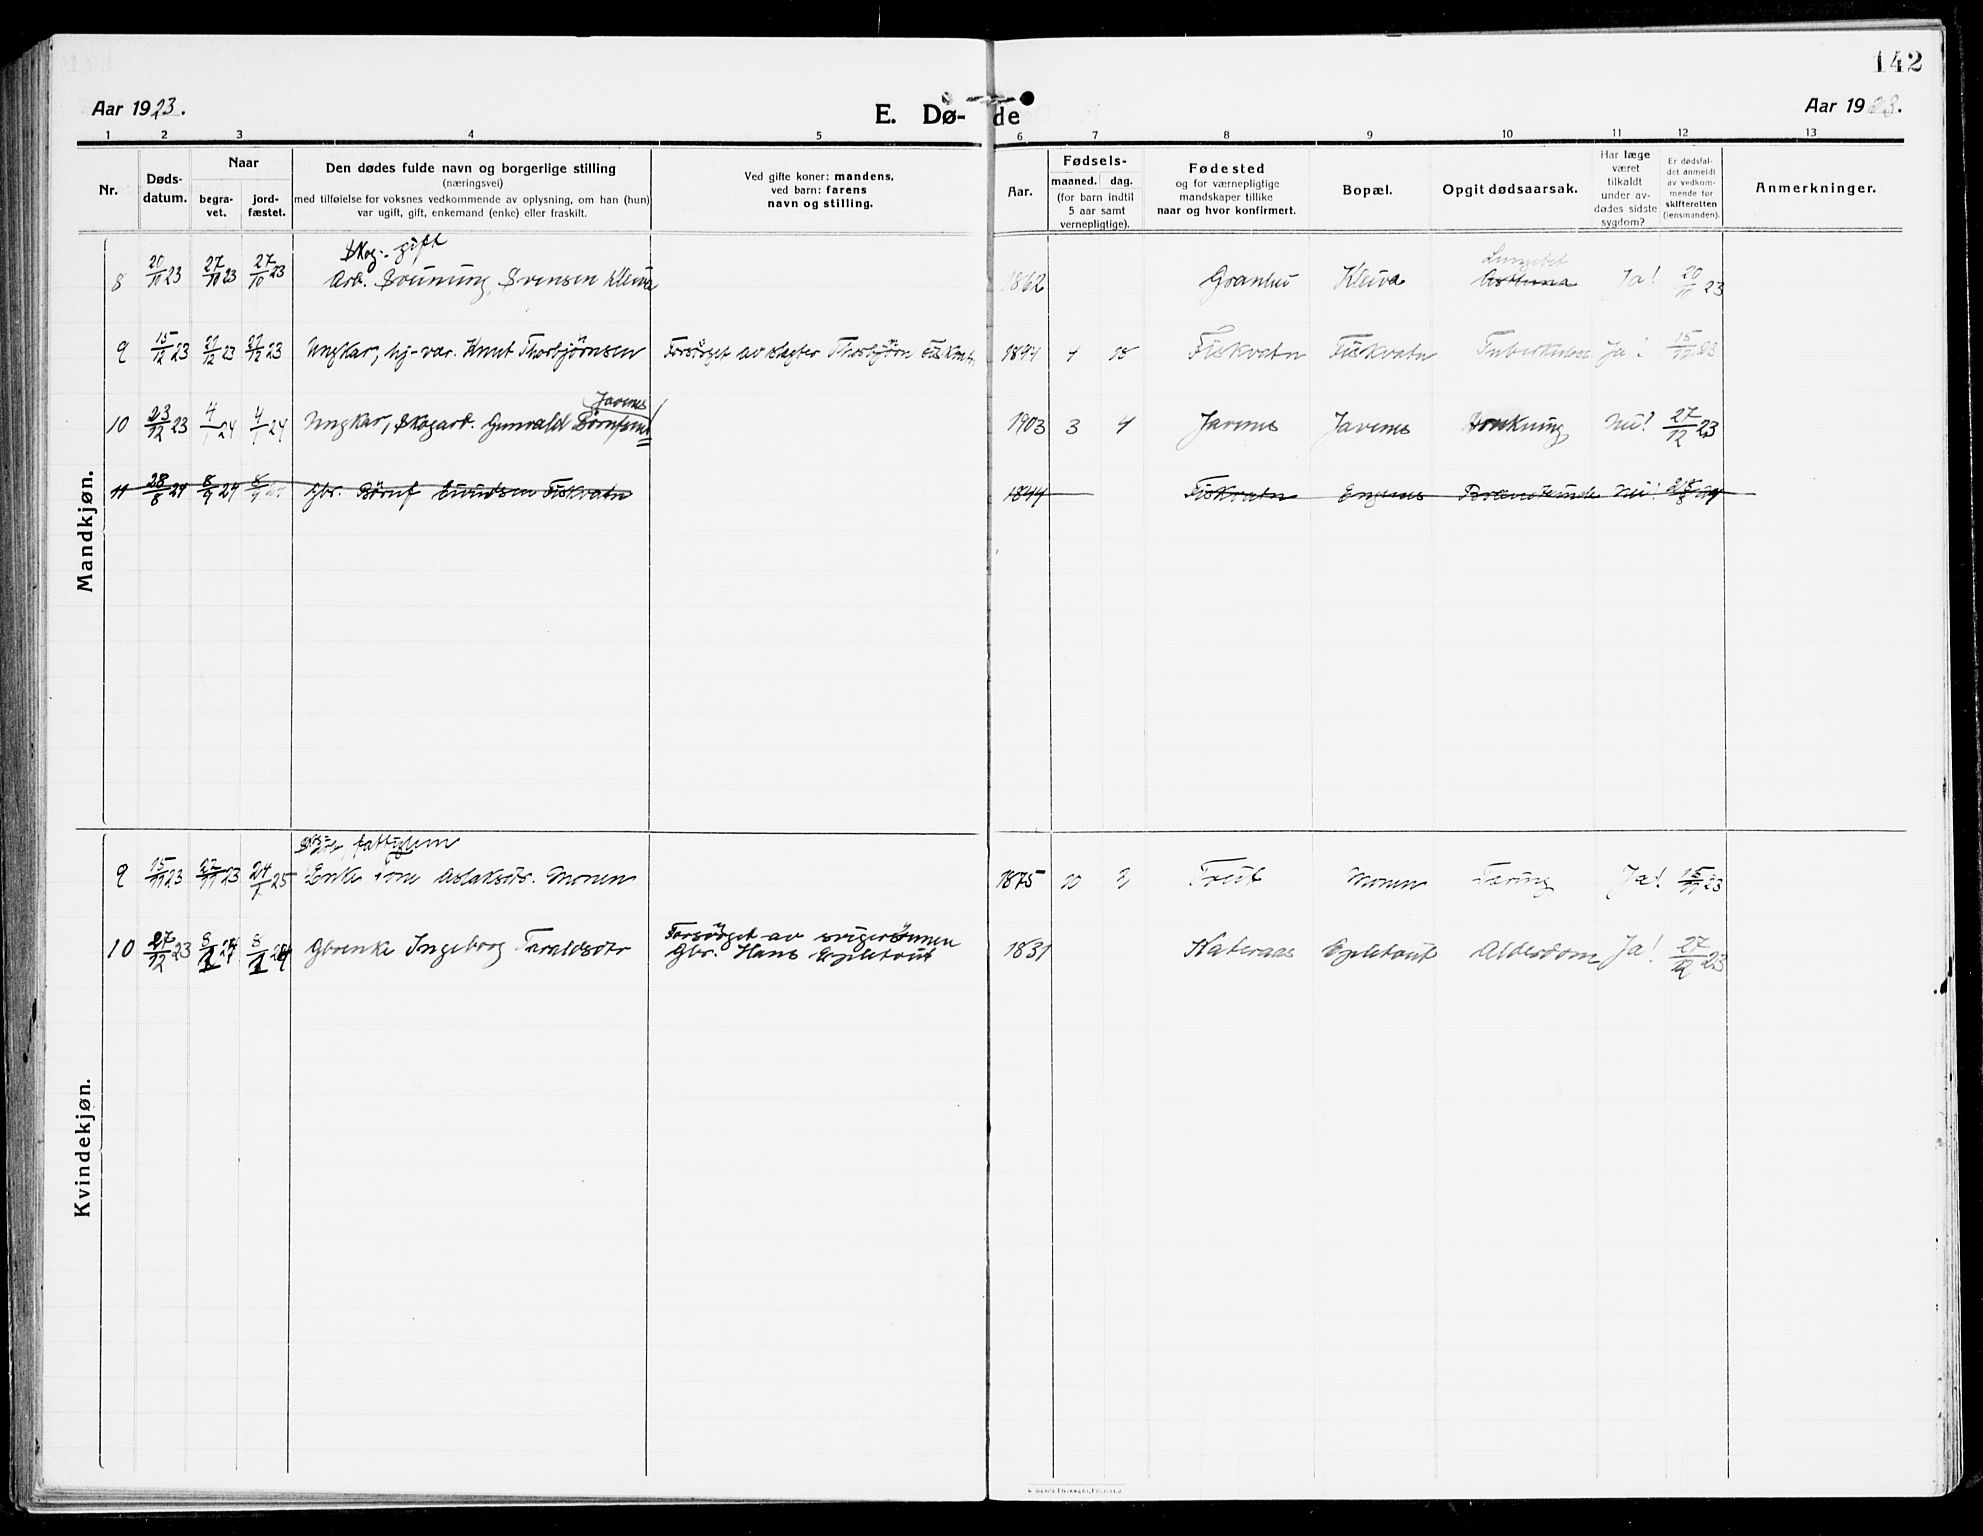 142
Aar 1923.
E. Dø- de
Aar 1923.
1 2 3 4 5 6 7 8 9 10 11 12 13
Nr.
Døds-
datum.
Naar
begra-
vet.
jord-
fæstet.
Den dødes fulde navn og borgerlige stilling
(næringsvei)
med tilføielse for voksnes vedkommende av oplysning, om han (hun)
var ugift, gift, enkemand (enke) eller fraskilt.
Ved gifte koner: mandens,
ved barn: farens
navn og stilling.
Aar.
Fødsels-
maaned. dag.
(for barn indtil
5 aar samt
vernepligtige).
Fødested
og for værnepligtige
mandskaper tillike
naar og hvor konfirmert.
Bopæl.
Opgit dødsaarsak.
Har læge
været
tilkaldt
under av-
dødes sidste
sygdom?
Er dødsfal-
det anmeldt
av vedkom-
mende for
skifteretten
(lensmanden).
Anmerkninger.
Mandkjøn.
Skog-. gift
8 20/10 23 27/10 23 27/10 23 Arb. Svenson Kleiva 1862 Kleiva Ja! 20/10 23
9 15/12 23 27/12 23 27/12 23 Ungkar, Knut Thorbjørnsen Forsørget av Thorbjørn Fiskvatn 1894 4 Fiskvatn Fiskvatn Tuberkulose Ja! 15/12 23
Javnes
10 23/12 23 4/1 24 4/1 24 Ungkar, Skogarb. Gunvald 1903 3 4 Javnes Javnes Nei! 27/12 23
11 28/8 24 8/9 24 8/9 24 Gbr. Eivindsen Fiskvatn 1844 Fiskvatn Engenes Nei! 28/8 24
Kvindekjøn.
fattighem
9 15/11 23 27/11 23 24/1 25 Enke Tone Aslaksdtr. Monen 1875 10 2 Treit Monen Tæring Ja! 15/11 23
Forsørget av svigersønnen
10 27/12 23 8/1 24 8/1 24 Gbrenke Ingeborg Taraldsdtr Gbr. Hans Epletveit 1831 Kateraas Epletveit Alderdom Ja! 27/12 23